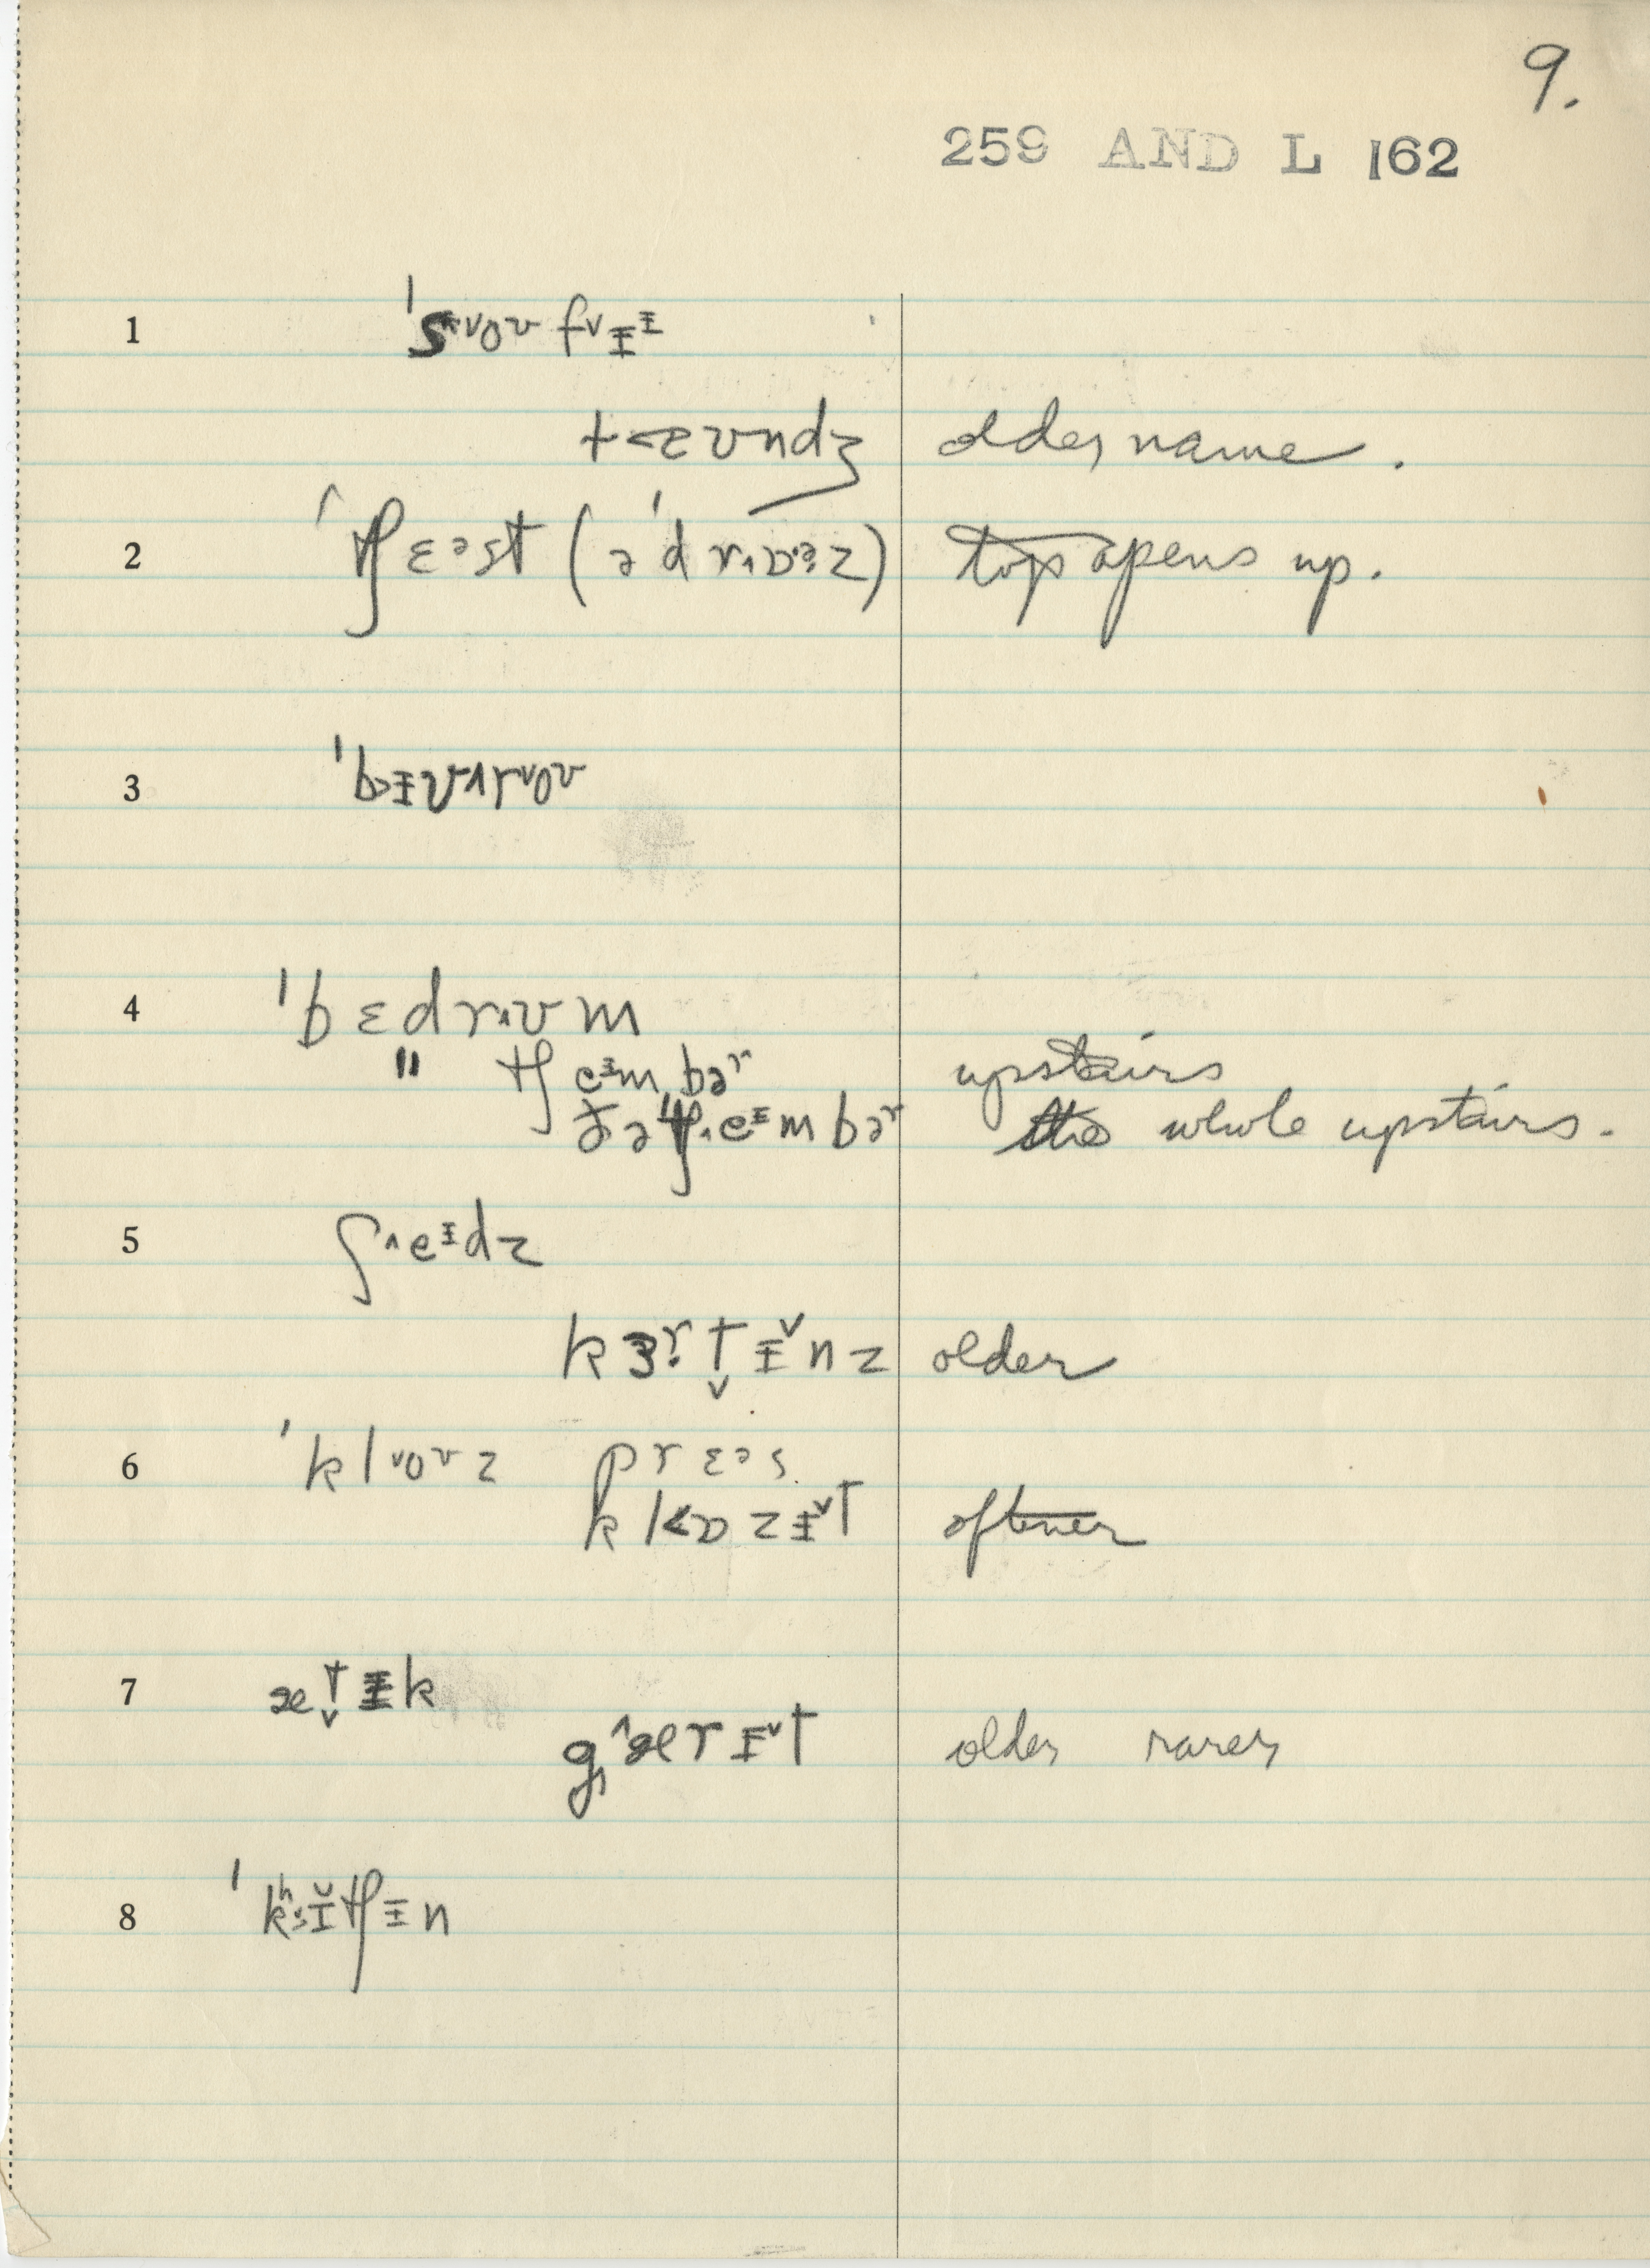 9.
259 AND L 162
1 ˈsᵛoʊ fᵛɨᶤ
tæʊndʒ older name.
2 ˈtʃɛᵊst (əˈdrʌɒəz) top opens up.
3 ˈbɨʊroʊ
4 ˈbɛdrʌʊm
" tʃeᶤmbəʳ upstairs
ðə ˈtʃeᶤmbəʳ the whole upstairs.
5 ʃeᶤdz
kɜʳtɨnz older
6 ˈkloʊz prɛᵊs
klɒzɨt oftener
7 ætɨk
gærɨt older rarer
8 ˈkʰɪtʃɨn